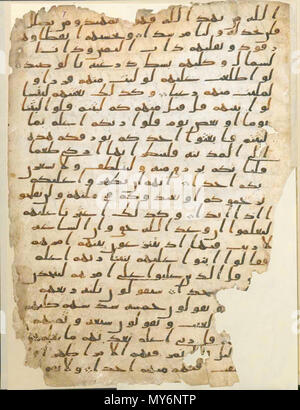 الله من يهد الله فهو المهتد ومن يضلل
فلن تجد له وليا مرشدا وتحسبهم ايقاظا وهم
رقود ونقلبهم ذات اليمين وذات ا
لشمال وكلبهم بسط ذرعيه بالوصيد
لو اطلعت عليهم لوليت منهم فرارا و
لملئت منهم رعبا وكذلك بعثنهم ليتسا
لوا بينهم قل قائل منهم كم لبثتم قالوا لبثنا
يوما او بعض يوم قالوا ربكم اعلم بما
لبثتم فابعثوا احدكم بورقكم هذه
الى المدينة فلينظر ايها ازكى طعما
فلياتكم برزق منه وليتلطف ولا يشعرن
بكم احدا انهم ان يظهروا عليكم
يرجموكم او يعيدوكم في ملتهم ولن تفلحو
ا اذا ابدا وكذلك اعثرنا عليهم
ليعلموا ان وعد الله حق وان الساعة
لا ريب فيها اذ يتنزعون بينهم امرهم
فقالوا ابنوا عليهم بنينا ربهم اعلم
قال الذين غلبوا على امرهم لنتخذن
مسجدا سيقولون ثلثة رابعهم
ويقولون خمسة سدسهم كلبهم
بالغيب ويقولون سبعة وثمنهم
قل ربي اعلم بعدتهم ما يعلمهم
قليل فلا تمار فيهم الا مرا ظهرا و
فيهم منهم احدا ولا تقو
alamy
Image ID: MY6NTP
www.alamy.com